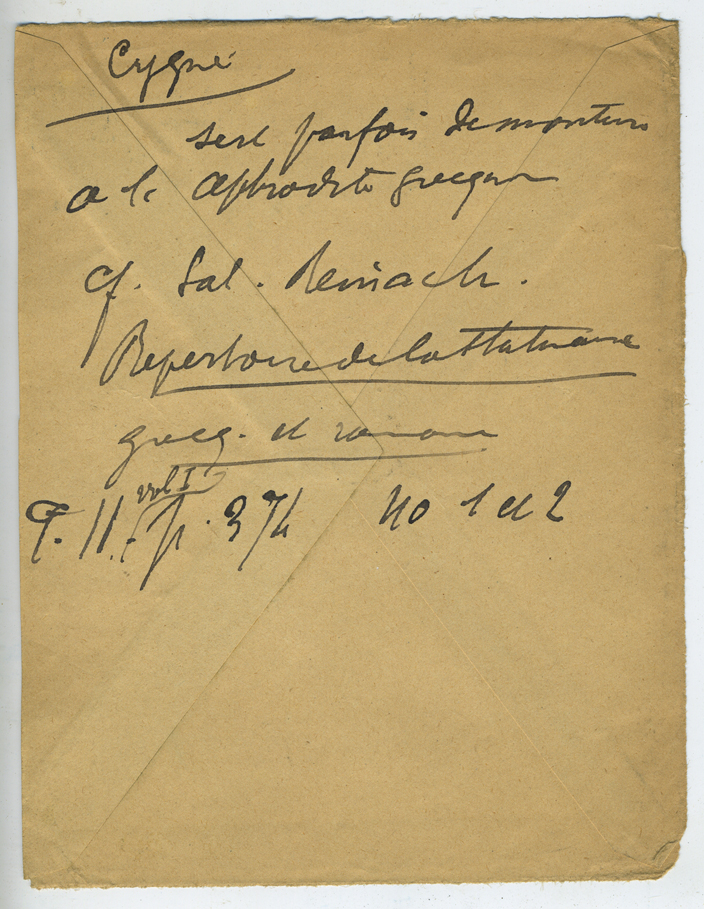 Cygne
sert parfois de monture
a la Aphrodite grecque
cf. Sal. Reinach.
Repertoire de la Statuaire
grecq. et romaine
T. II. vol I p. 374 no 1 et 2